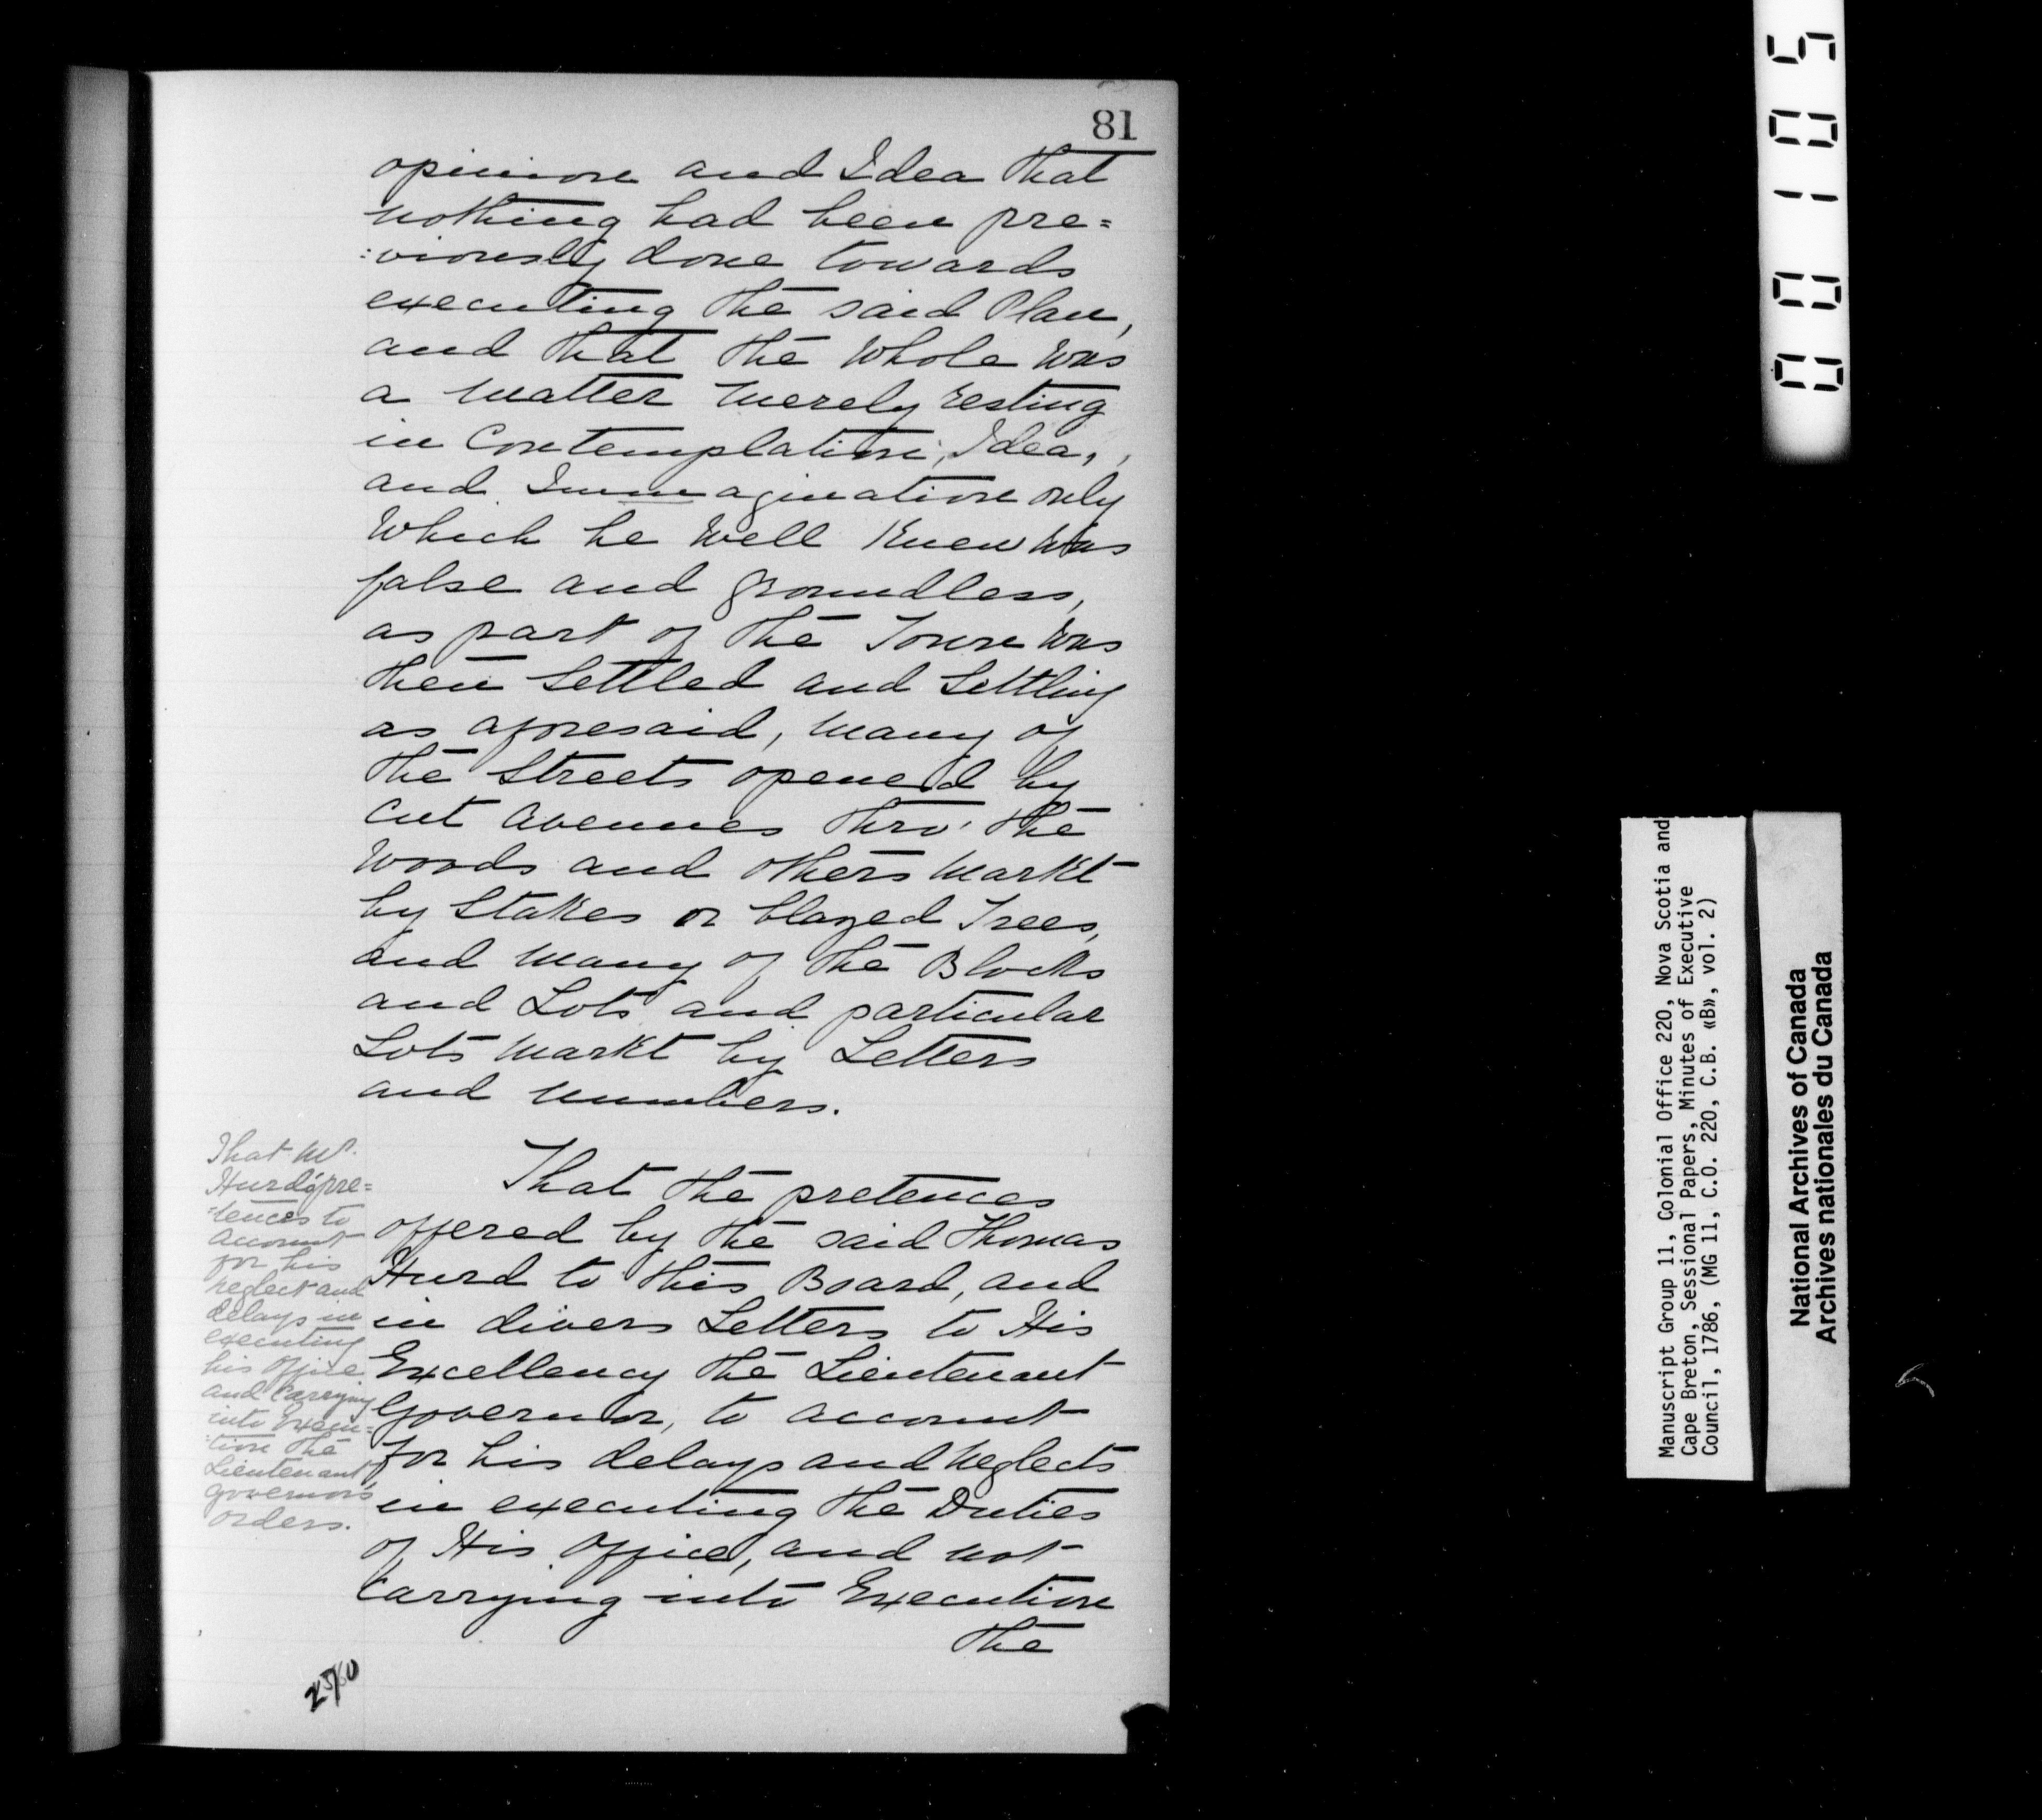 81
opinion and Idea that
nothing had been pre=
:viously done towards
executing the said Plan,
and that the Whole was
a matter merely resting
in Contemplation, Idea,
and Immagination only
Which he Well Knew was
false and groundless,
as part of the Town was
then Settled and Settling
as aforesaid, many of
the Streets opened by
cut avenues thro' the
Woods and others markt
by Stakes or blazed Trees,
and many of the Blocks
and Lots and particular
Lots markt by Letters
and numbers.
That Mr.
Hurd's pre=
:tences to
account
for his
neglect and
delays in
executing
his Office
and Carrying
into Execu=
:tion the
Lieutenant
Governor's
orders.
That the pretences
offered by the said Thomas
Hurd to this Board, and
in divers Letters to His
Excellency the Lieutenant
Governor, to account
for his delays and Neglects
in executing the Duties
of His Office, and not
Carrying into Execution
the
001105
Manuscript Group 11, Colonial Office 220, Nova Scotia and
Cape Breton, Sessional Papers, Minutes of Executive
Council, 1786, (MG 11, C.O. 220, C.B. «B», vol. 2)
National Archives of Canada
Archives nationales du Canada